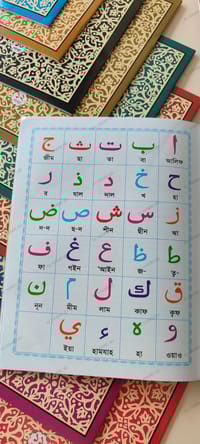 ا ب ت ث ج
জীম ছা তা বা আলিফ
ح خ د ذ ر
র যাল দাল খ হা
ز س ش ص ض
দ-দ ছ-দ শীন ছীন
ط ظ ع غ ف
ফা গইন 'আইন জ-
ق ك ل م ن
নূন মীম লাম কাফ
و ه ء ي
ইয়া হামযাহ হা ওয়াও